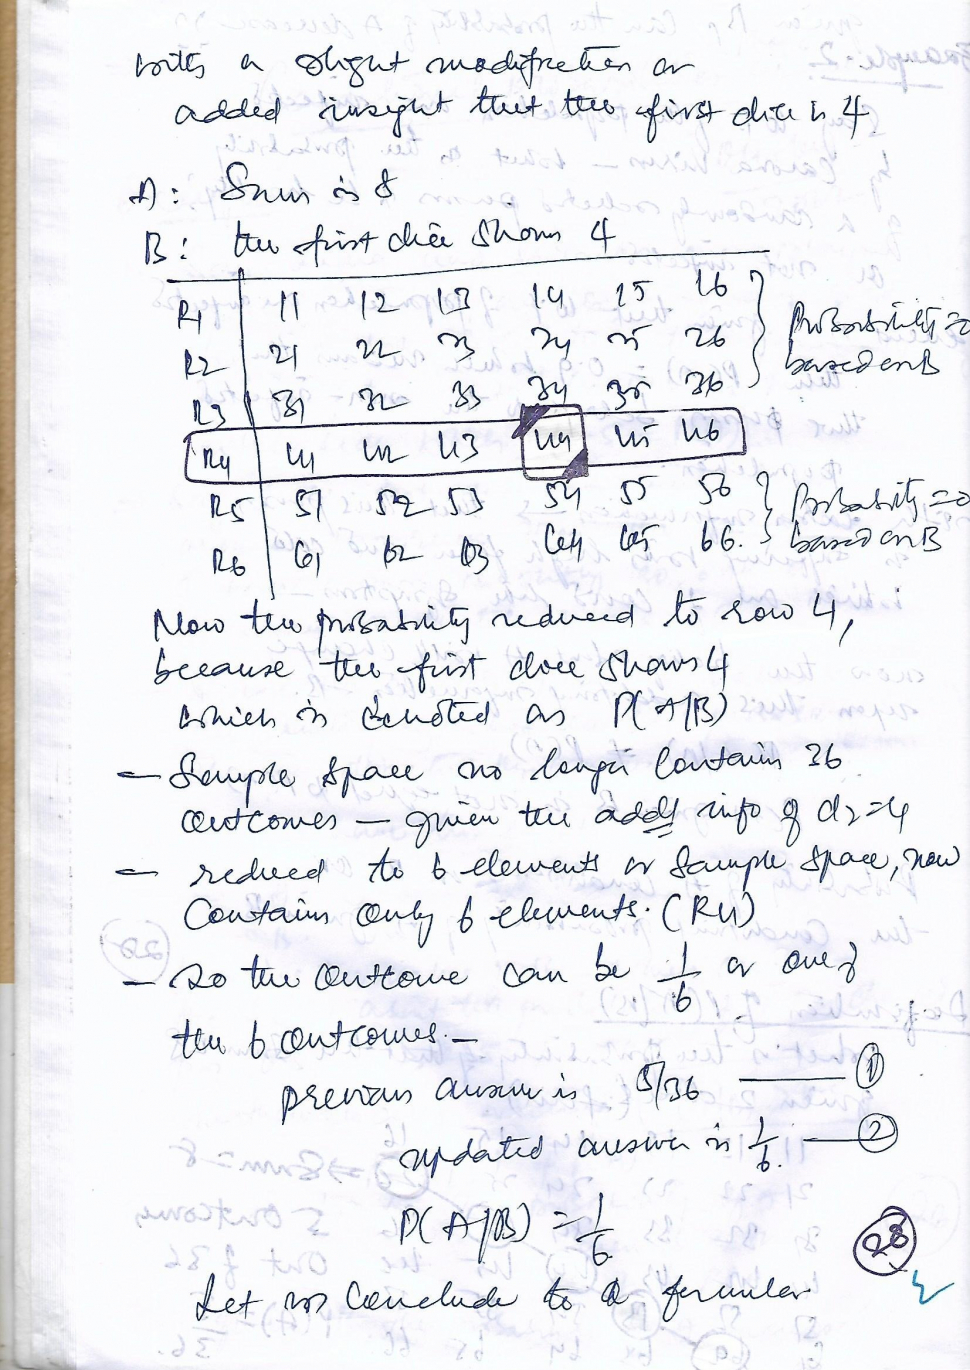 with a slight modification or
added insight that the first dice is 4.
A: Sum is 8
B: the first dice shows 4
R1 11 12 13 14 15 16
R2 21 22 23 24 25 26
R3 31 32 33 34 35 36
Probability = 0
based on B
R4 41 42 43 44 45 46
R5 51 52 53 54 55 56
R6 61 62 63 64 65 66.
Probability = 0
based on B
Now the probability reduced to row 4,
because the first dice shows 4
which is denoted as P(A/B)
– Sample space no longer contain 36
outcomes – given the addl info of d2=4
– reduced to 6 elements or sample space, now
contains only 6 elements. (R4)
– so the outcome can be 1/6 or one of
the 6 outcomes. –
previous answer is 5/36 —— 1
updated answer is 1/6. —— 2
P(A/B) = 1/6
28
Let us conclude to a formular